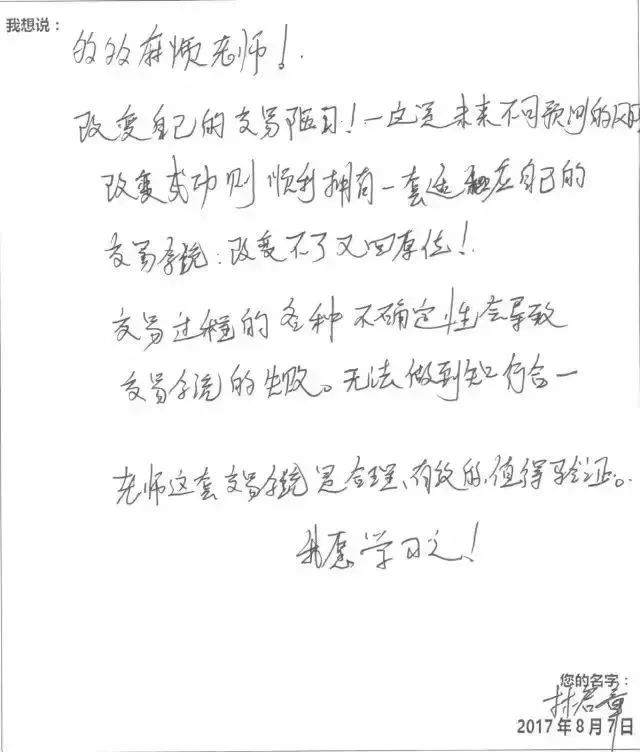 我想说：
麻烦老师！
改变自己的交易陋习！一这是未来不可预测的风
改变成功则顺利拥有一套适应自己的
交易系统：改变不了又回原位！
交易过程的各种不确定性会导致
交易系统的失败。无法做到知行合一
老师这套交易系统是合理、有效的，值得验证。
我愿学习之！
您的名字：
林君章
2017年8月7日